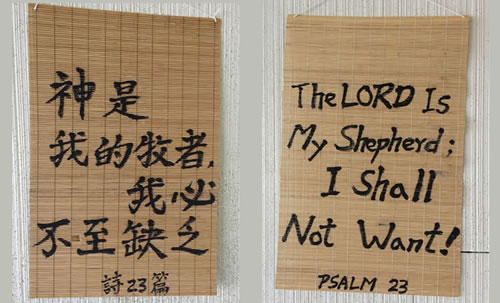 神是
我的牧者,
我必
不至缺乏
詩23篇
The LORD Is
My Shepherd;
I Shall
Not Want!
PSALM 23